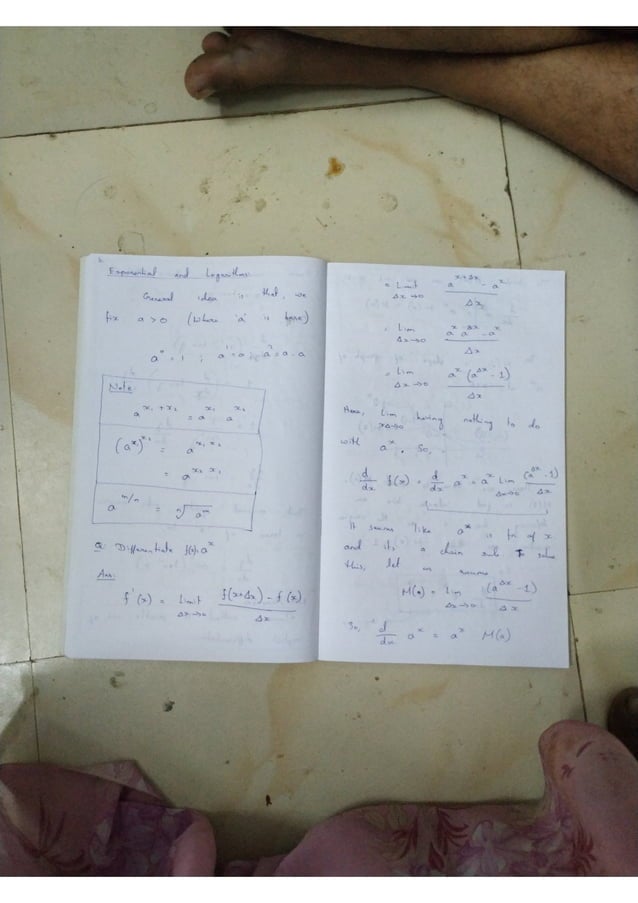 Exponential and Logarithms:
General idea is that, we
fix a > 0 (where 'a' is base)
a⁰ = 1 ; a¹ = a ; a² = a · a
Note:
a^(x₁ + x₂) = a^x₁ a^x₂
(a^x₁)^x₂ = a^(x₁ x₂)
= a^(x₂ x₁)
a^(m/n) = ⁿ√(a^m)
Q: Differentiate f(x) = a^x
Ans:
f'(x) = Limit Δx→0 (f(x+Δx) - f(x)) / Δx
= Limit Δx→0 (a^(x+Δx) - a^x) / Δx
= Lim Δx→0 (a^x a^Δx - a^x) / Δx
= Lim Δx→0 a^x (a^Δx - 1) / Δx
Here, Lim Δx→0 having nothing to do
with a^x. So,
d/dx f(x) = d/dx a^x = a^x Lim Δx→0 (a^Δx - 1) / Δx
It seems like a^x is fn of x
and its a chain rule To solve
this, let us assume
M(a) = Lim Δx→0 (a^Δx - 1) / Δx
So, d/dx a^x = a^x M(a)